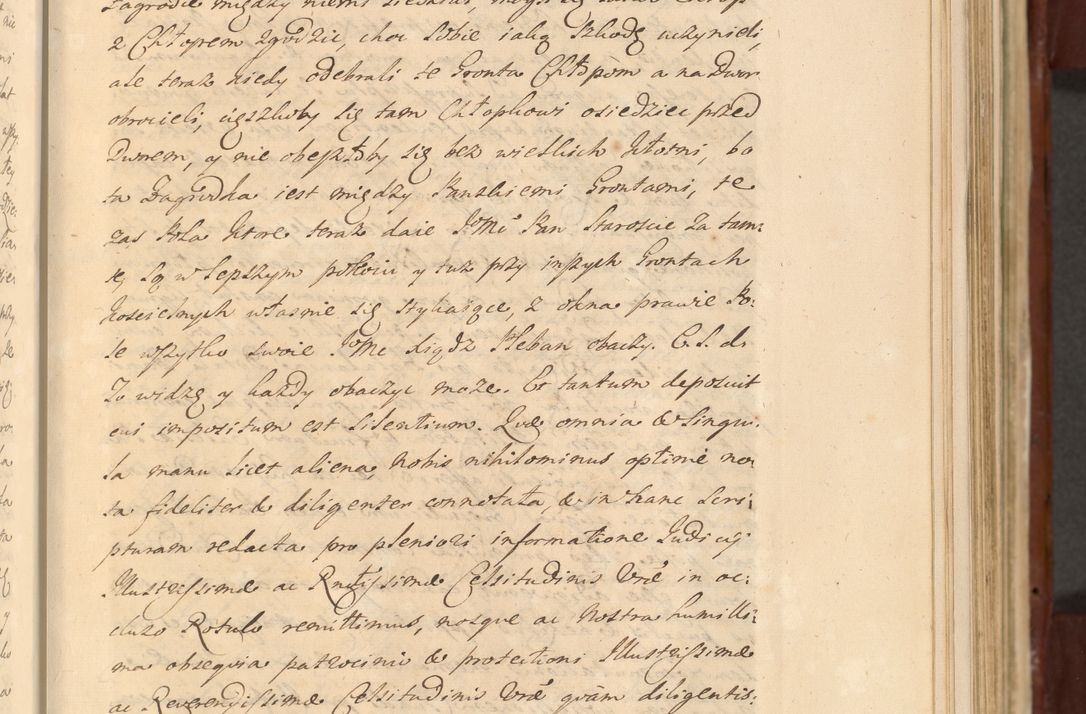 Zagrodzie między niemi siedział, mogł się
z Chłopem zgodzić, choc sobie iaką szkodę uczynieli,
ale teraz kiedy odebrali te Gronta Chłopom a na Dwor
obrocieli, uszłoby się tam Chłopkowi osiedziec przed
Dworem, y nie obeszłoby się bez wielkich kłotni, bo
ta Zagrodka iest między Panskiemi Grontami, te
zas Pola ktore teraz daie JoMć Pan Staroscie za tam:
te, są w lepszym pokoiu y tuz przy inszych Grontach
Koscielnych własnie się stykaiące, z okna prawie Po:
le wszytko swoie JoMć Xiądz Pleban obaczy. C. S. d.
To widzę y kazdy obaczyc moze. Et tantum deposuit
cui impositum est silentium. Quæ omnia & singu:
la manu licet aliena, Nobis nihilominus optimè no:
ta fideliter & diligenter connotata, & in hanc Scri:
pturam redacta pro pleniori informatione Judicij
Illustrissimæ ac Rndissimæ Celsitudinis Vræ in oc:
cluso Rotulo remittimus, nosque ac Nostra humilli:
ma obsequia patrocinio & protectioni Illustrissimæ
ac Reverendissimæ Celsitudinis Vræ quàm diligentis: